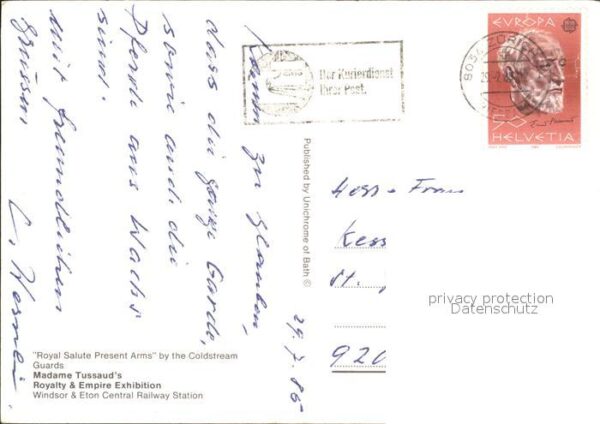 Kaum zu glauben,
dass die ganze Garde,
sowie auch die
Pferde aus Wachs
sind.
Mit freundlichen
Grüssen
29.7.86
"Royal Salute Present Arms" by the Coldstream
Guards
Madame Tussaud's
Royalty & Empire Exhibition
Windsor & Eton Central Railway Station
Published by Unichrome of Bath ©
Der Kurierdienst
Ihrer Post.
8034 ZÜRICH
EVROPA
50
HELVETIA
Kess
St.
920
privacy protection
Datenschutz